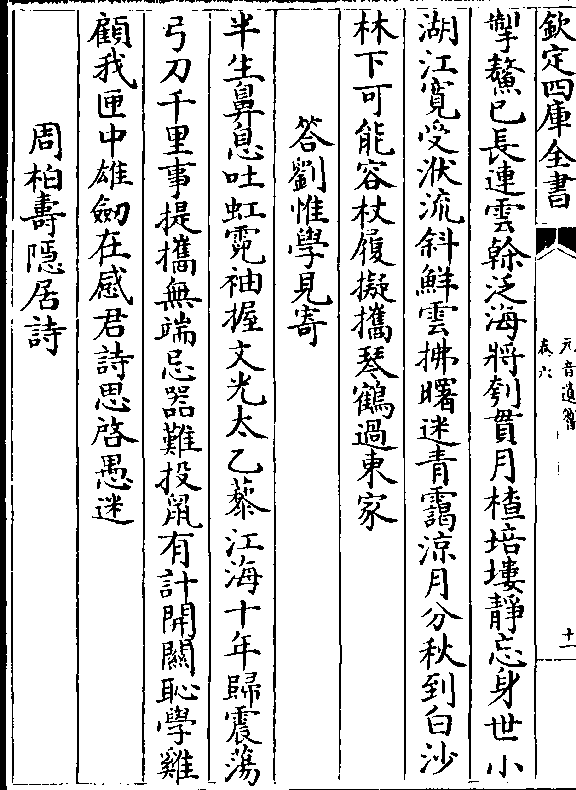 欽定四庫全書
元音遺響
卷六
十一
掣鰲已長連雲榦泛海將刳貫月楂培塿静忘身世小
湖江寛受泒流斜鮮雲拂曙迷青靄凉月分秋到白沙
林下可能容杖履擬攜琴鶴過東家
答劉惟學見寄
半生鼻息吐虹霓袖握文光太乙藜江海十年歸震蕩
弓刀千里事提攜無端忌器難投䑕有計開闗恥學雞
顧我匣中雄劒在感君詩思啓愚迷
周柏壽隱居詩